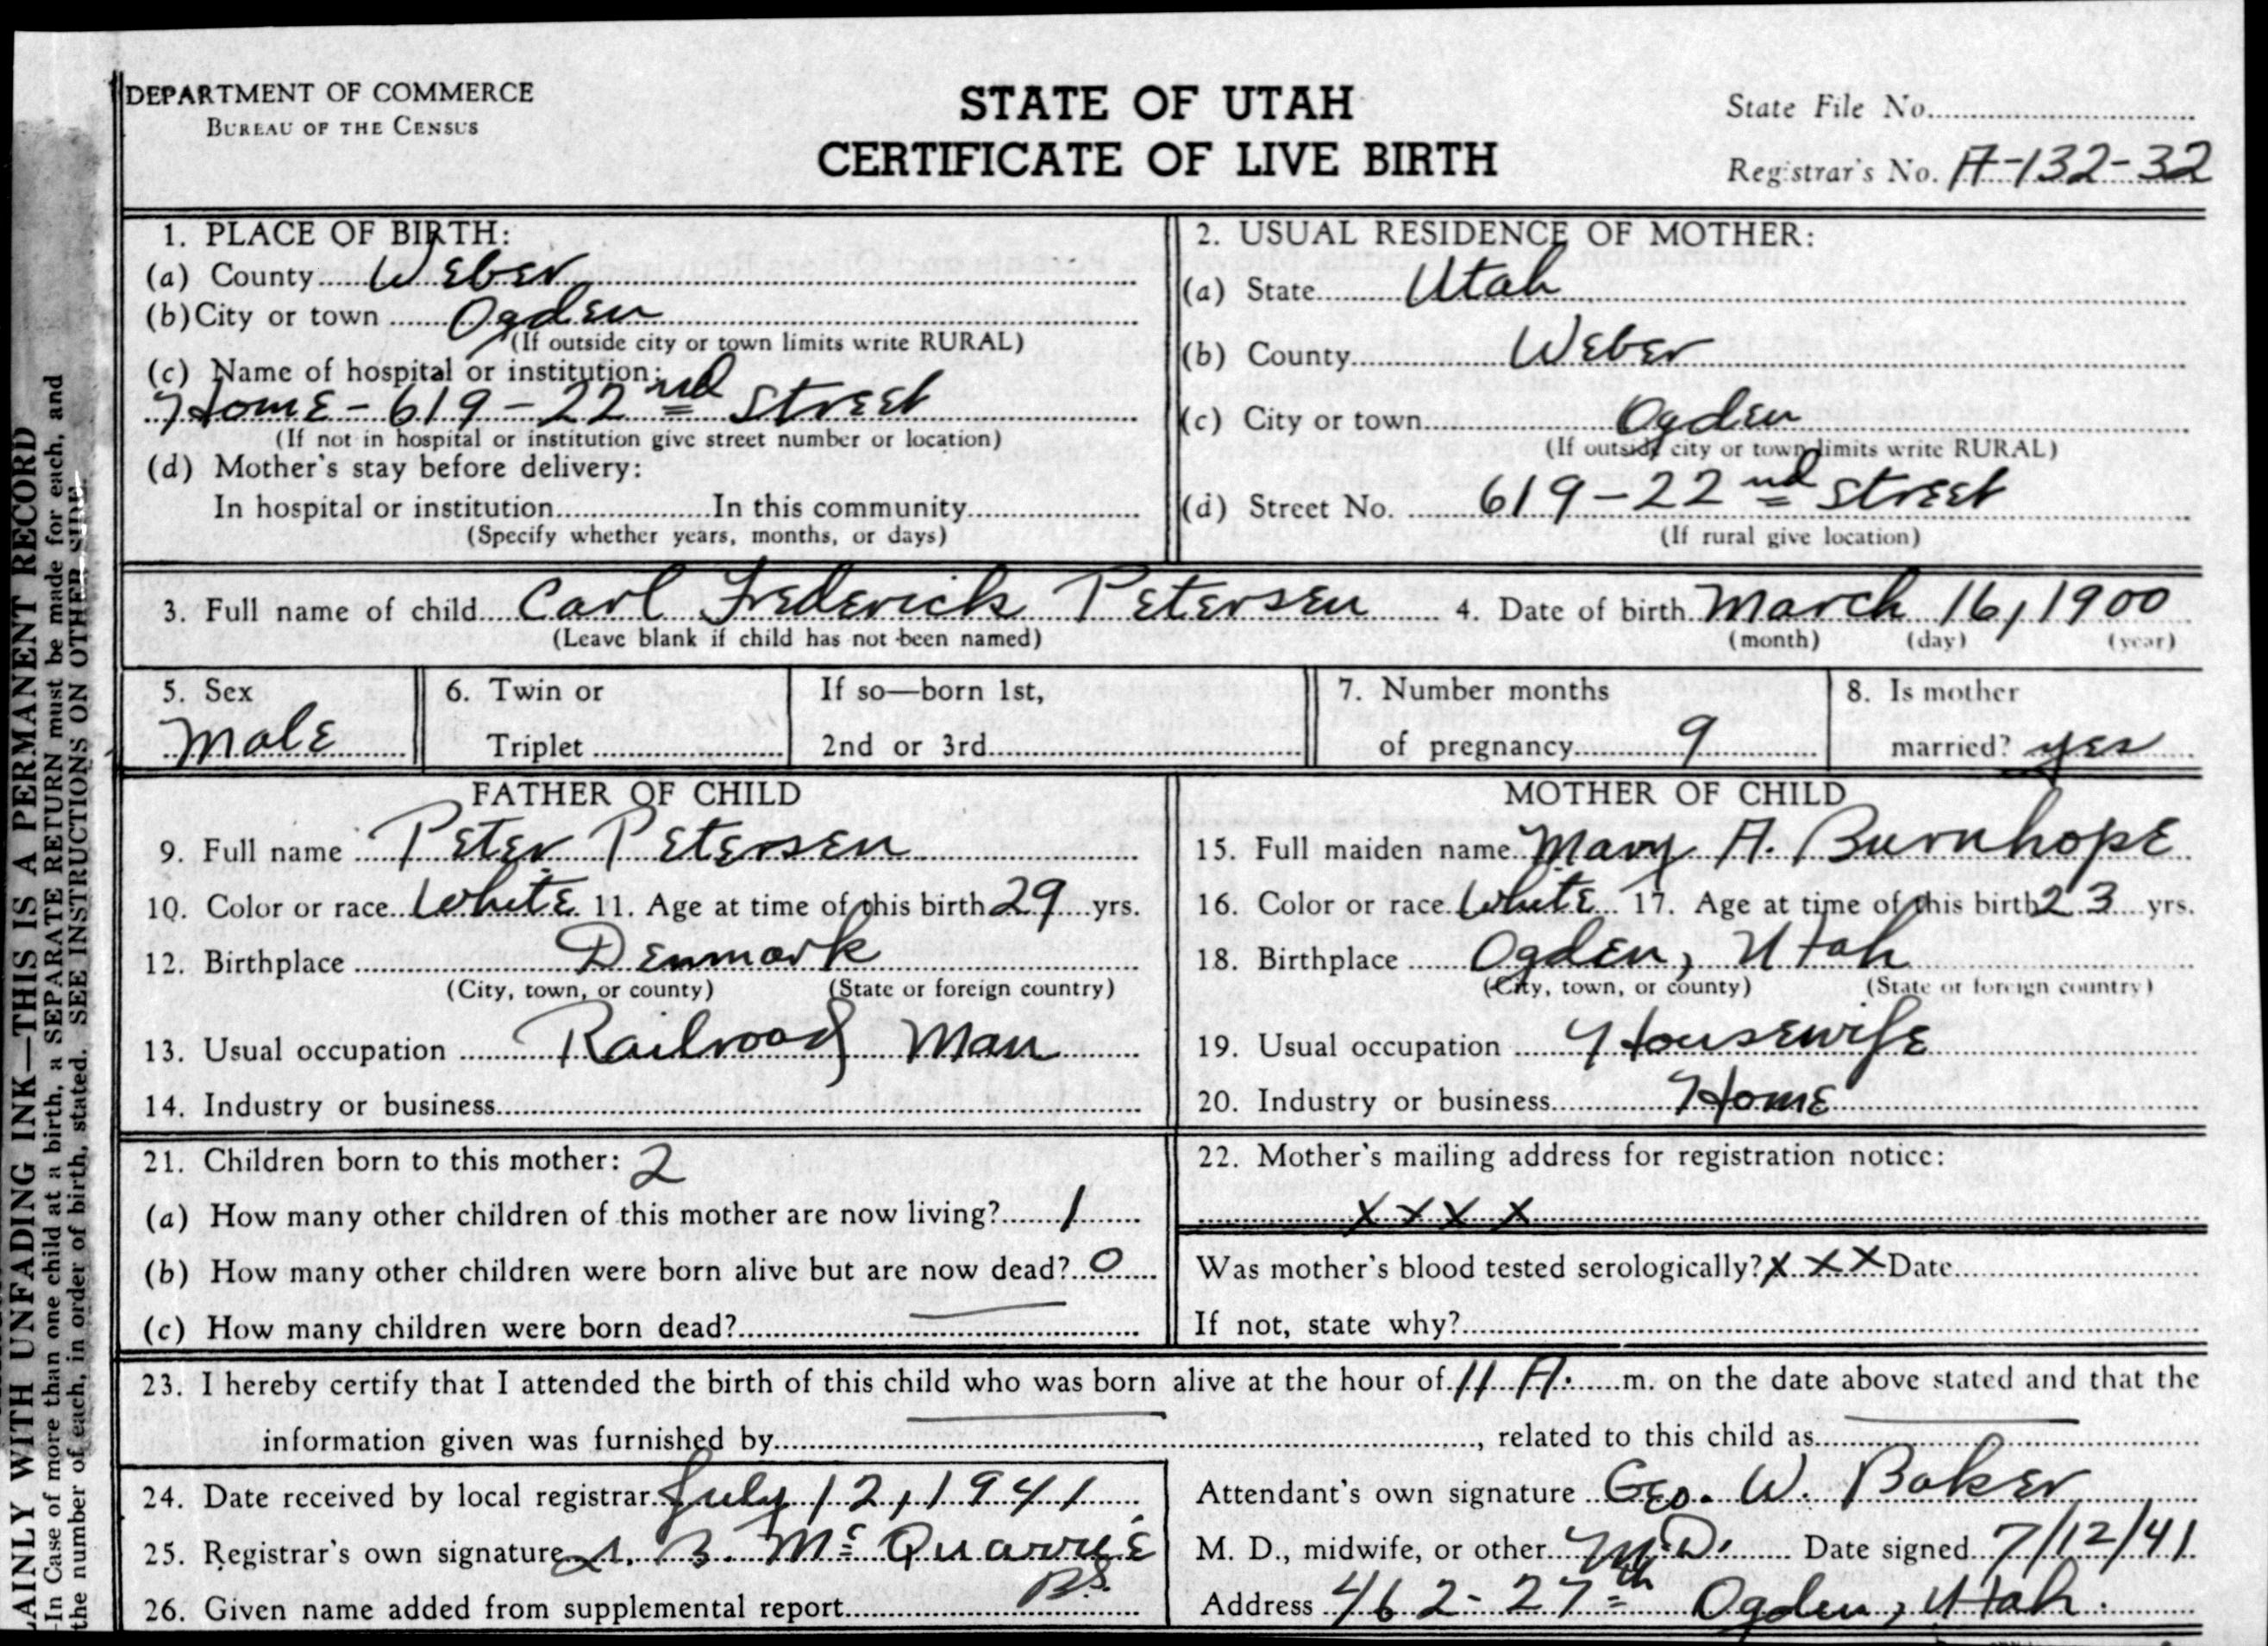 DEPARTMENT OF COMMERCE
BUREAU OF THE CENSUS
STATE OF UTAH
CERTIFICATE OF LIVE BIRTH
State File No.
Registrar's No. A-132-32
1. PLACE OF BIRTH:
(a) County Weber
(b) City or town Ogden
(If outside city or town limits write RURAL)
(c) Name of hospital or institution:
Home - 619 - 22nd Street
(If not in hospital or institution give street number or location)
(d) Mother's stay before delivery:
In hospital or institution In this community
(Specify whether years, months, or days)
2. USUAL RESIDENCE OF MOTHER:
(a) State Utah
(b) County Weber
(c) City or town Ogden
(If outside city or town limits write RURAL)
(d) Street No. 619 - 22nd Street
(If rural give location)
3. Full name of child Carl Frederick Petersen 4. Date of birth March 16, 1900
(Leave blank if child has not been named) (month) (day) (year)
5. Sex
Male
6. Twin or
Triplet
If so—born 1st,
2nd or 3rd
7. Number months
of pregnancy 9
8. Is mother
married? yes
FATHER OF CHILD
9. Full name Peter Petersen
10. Color or race White 11. Age at time of this birth 29 yrs.
12. Birthplace Denmark
(City, town, or county) (State or foreign country)
13. Usual occupation Railroad Man
14. Industry or business
MOTHER OF CHILD
15. Full maiden name Mary A. Burnhope
16. Color or race White 17. Age at time of this birth 23 yrs.
18. Birthplace Ogden, Utah
(City, town, or county) (State or foreign country)
19. Usual occupation Housewife
20. Industry or business Home
21. Children born to this mother: 2
(a) How many other children of this mother are now living? 1
(b) How many other children were born alive but are now dead? 0
(c) How many children were born dead?
22. Mother's mailing address for registration notice:
X X X X
Was mother's blood tested serologically? X X X Date
If not, state why?
23. I hereby certify that I attended the birth of this child who was born alive at the hour of 11 A. m. on the date above stated and that the
information given was furnished by , related to this child as
24. Date received by local registrar July 12, 1941
25. Registrar's own signature B. McQuarrie
BS.
26. Given name added from supplemental report
Attendant's own signature Geo. W. Baker
M. D., midwife, or other M.D. Date signed 7/12/41
Address 462 - 27th Ogden, Utah.
LAINLY WITH UNFADING INK—THIS IS A PERMANENT RECORD
-In Case of more than one child at a birth, a SEPARATE RETURN must be made for each, and
the number of each, in order of birth, stated. SEE INSTRUCTIONS ON OTHER SIDE.